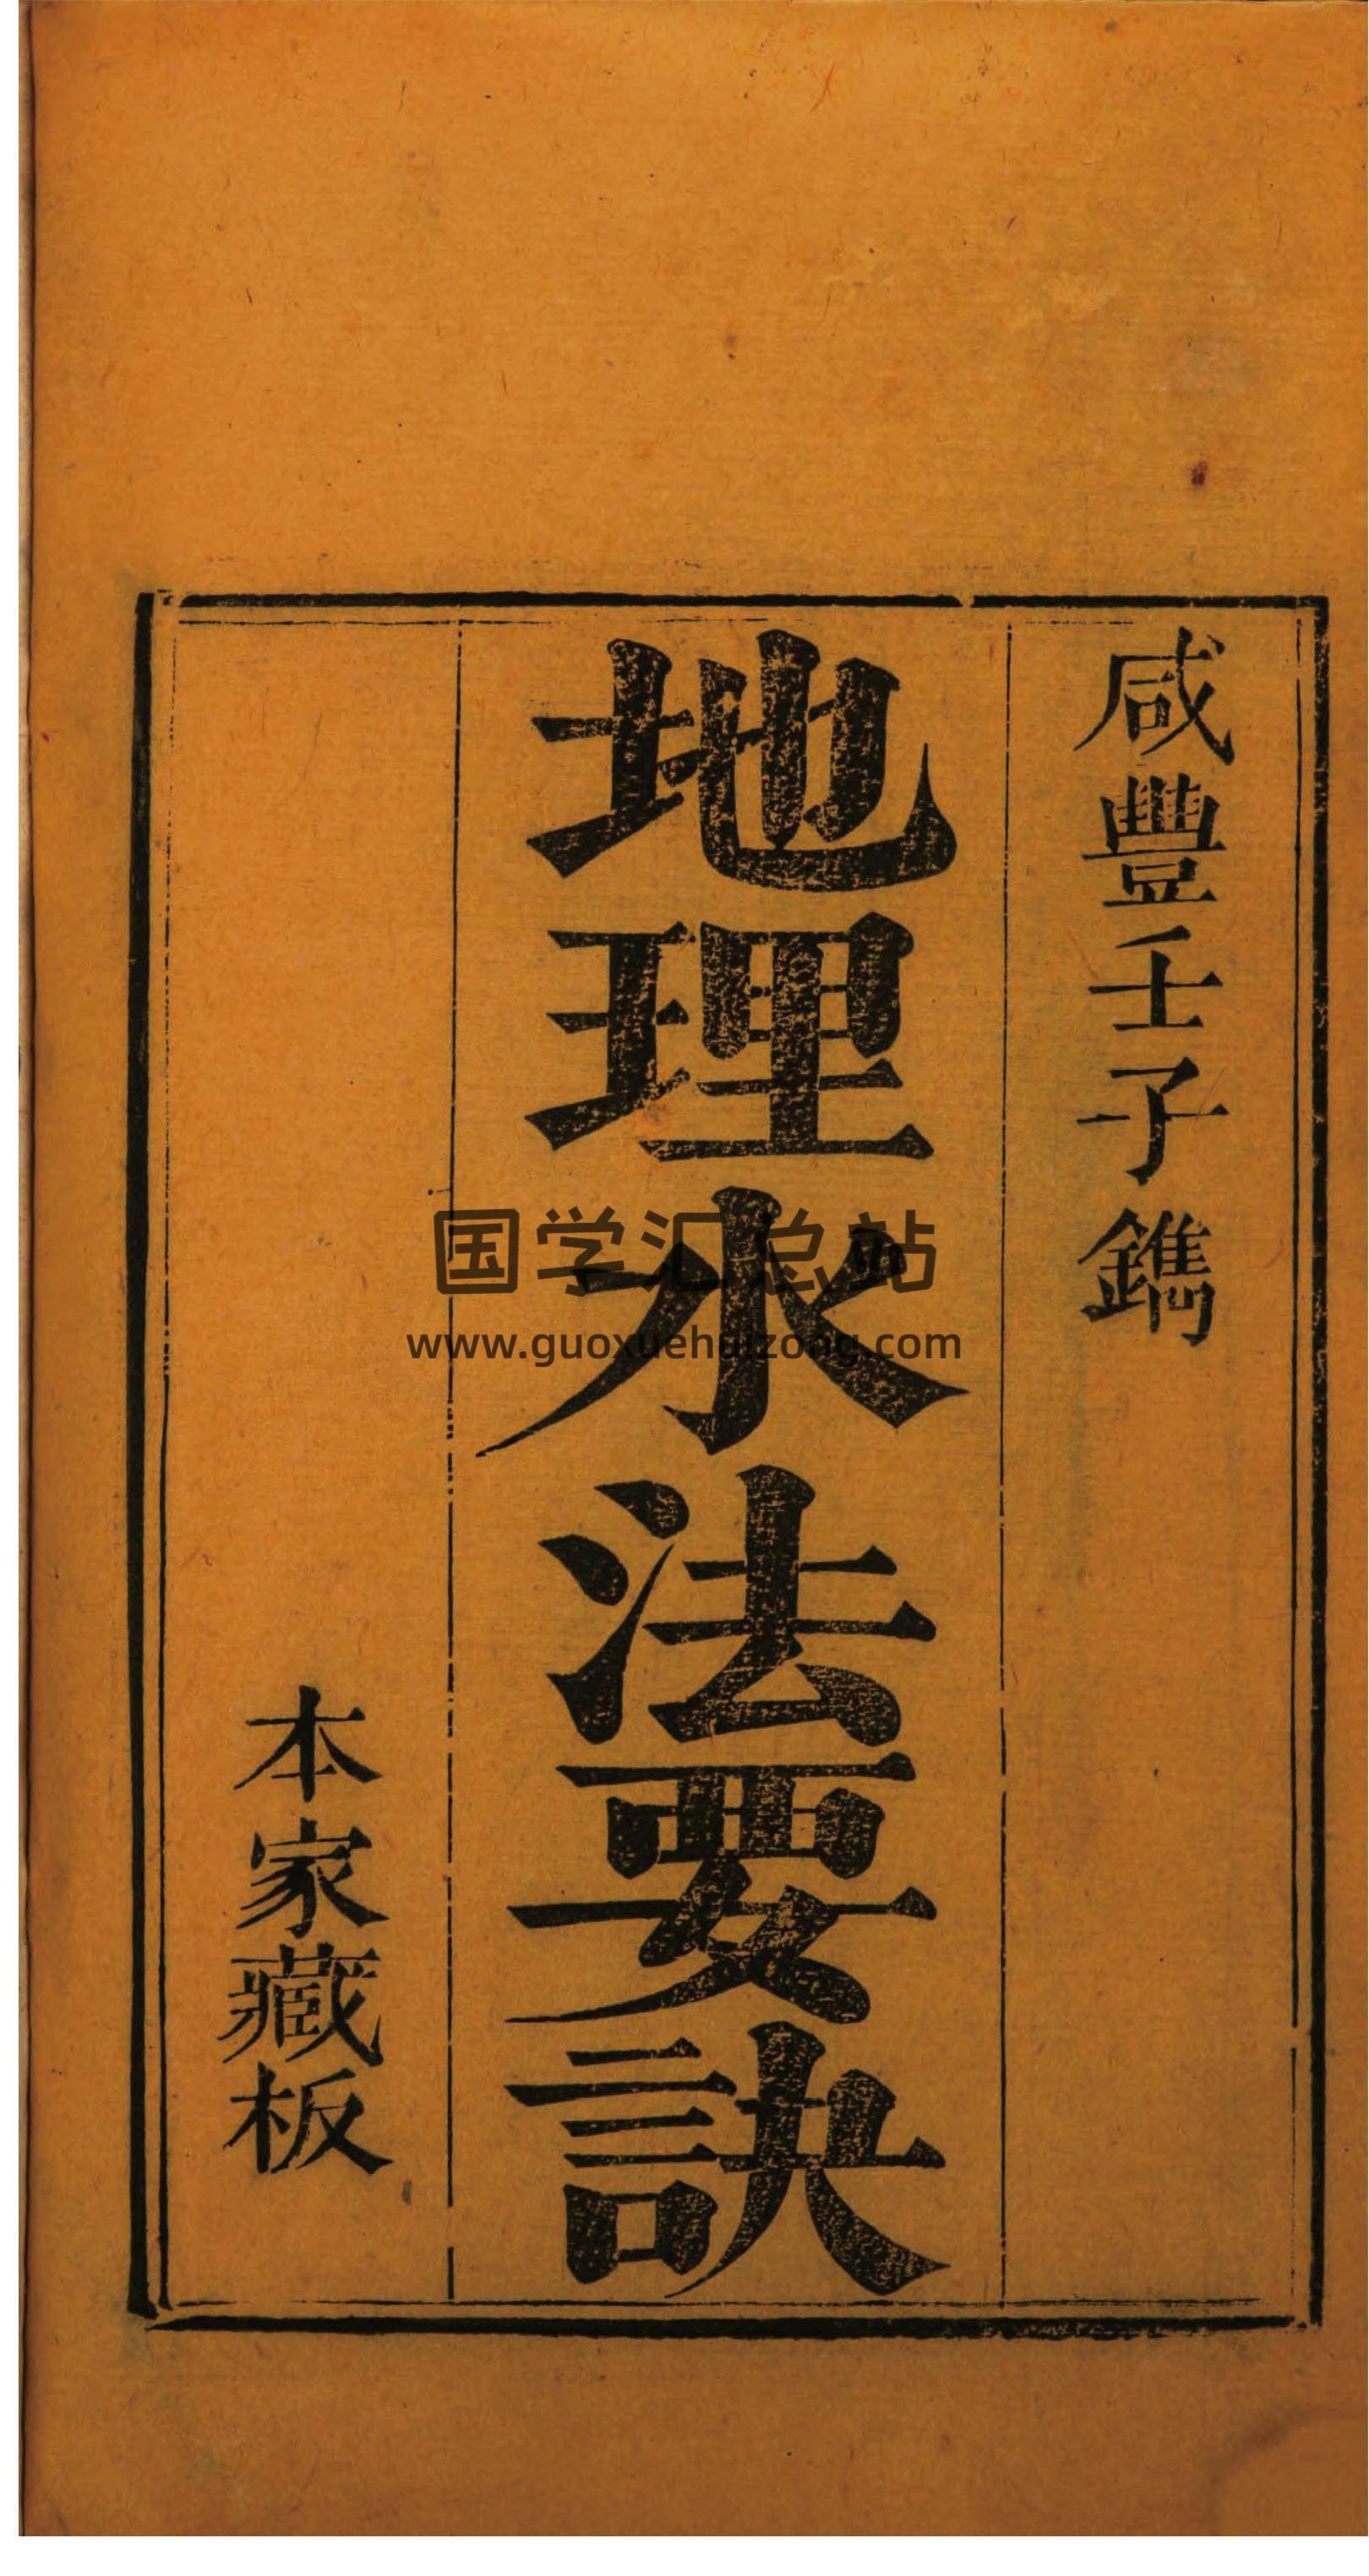 咸豐壬子鐫
地理水法要訣
本家藏板
国学汇总站
www.guoxuehuizong.com